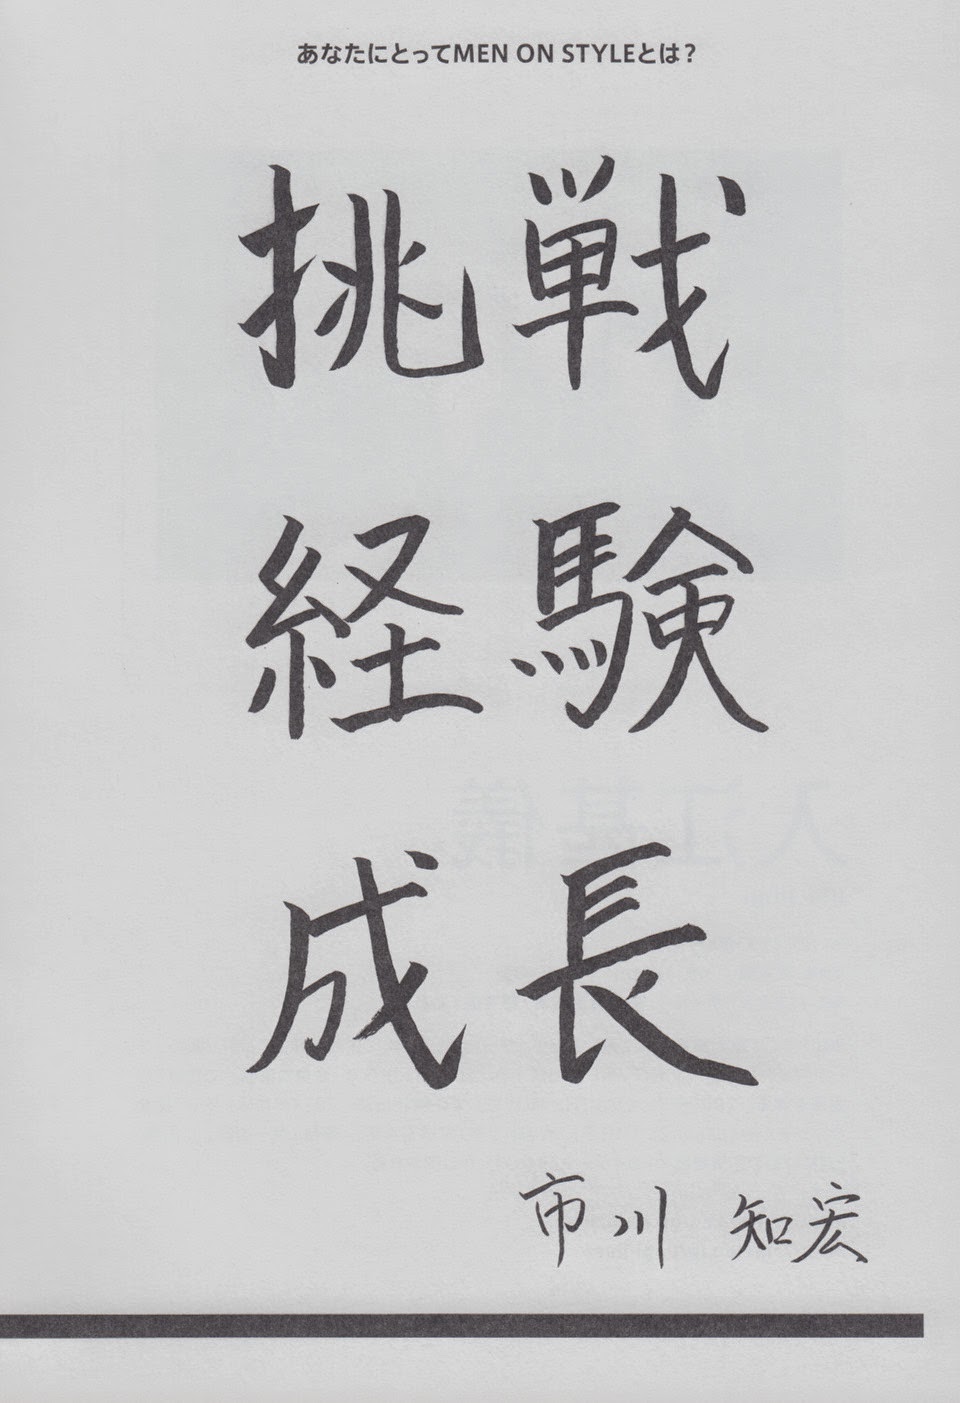 あなたにとってMEN ON STYLEとは？
挑戦
経験
成長
市川 知宏